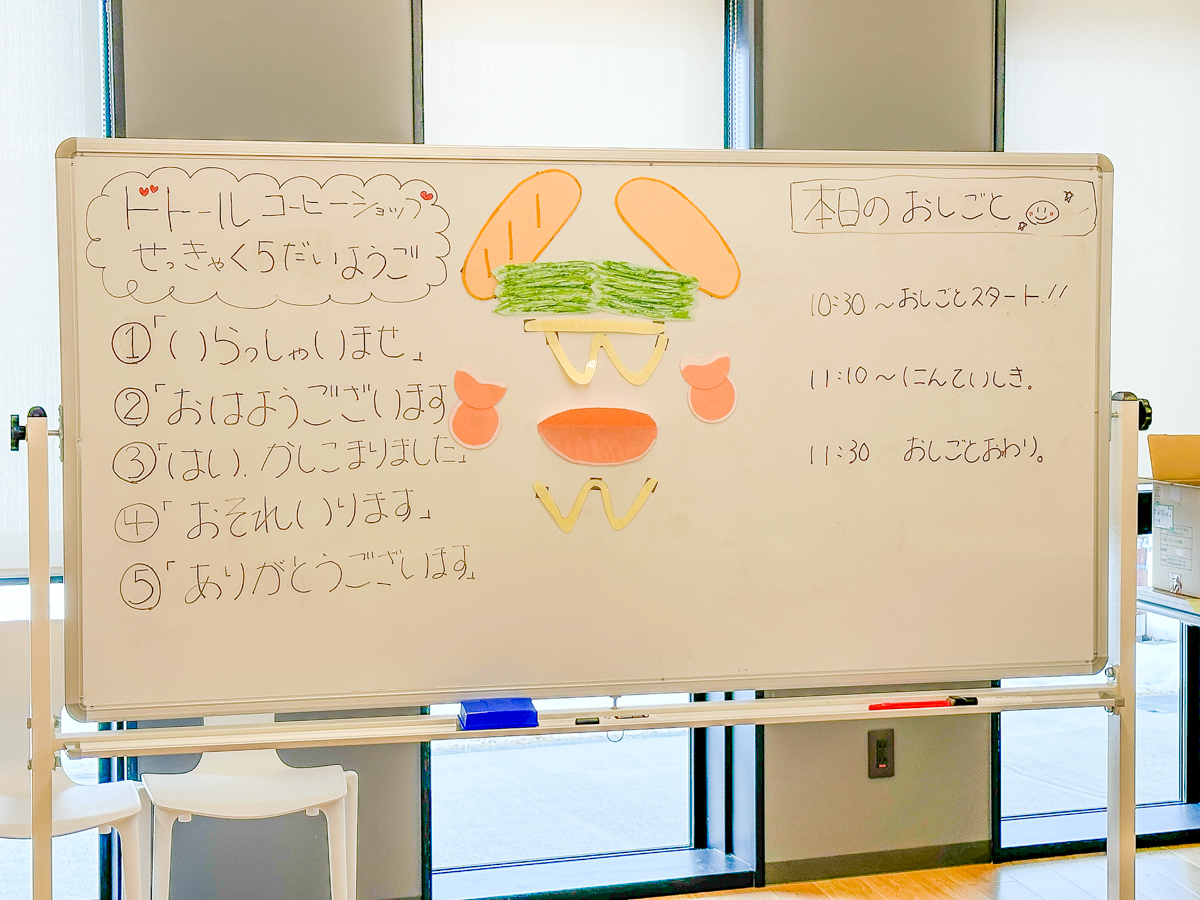 ドトール コーヒーショップ
せっきゃく5だいようご
①「いらっしゃいませ」
②「おはようございます
③「はい、かしこまりました」
④「おそれいります」
⑤「ありがとうございます」
本日のおしごと
10:30～おしごとスタート!!
11:10～にんていしき。
11:30 おしごとおわり。